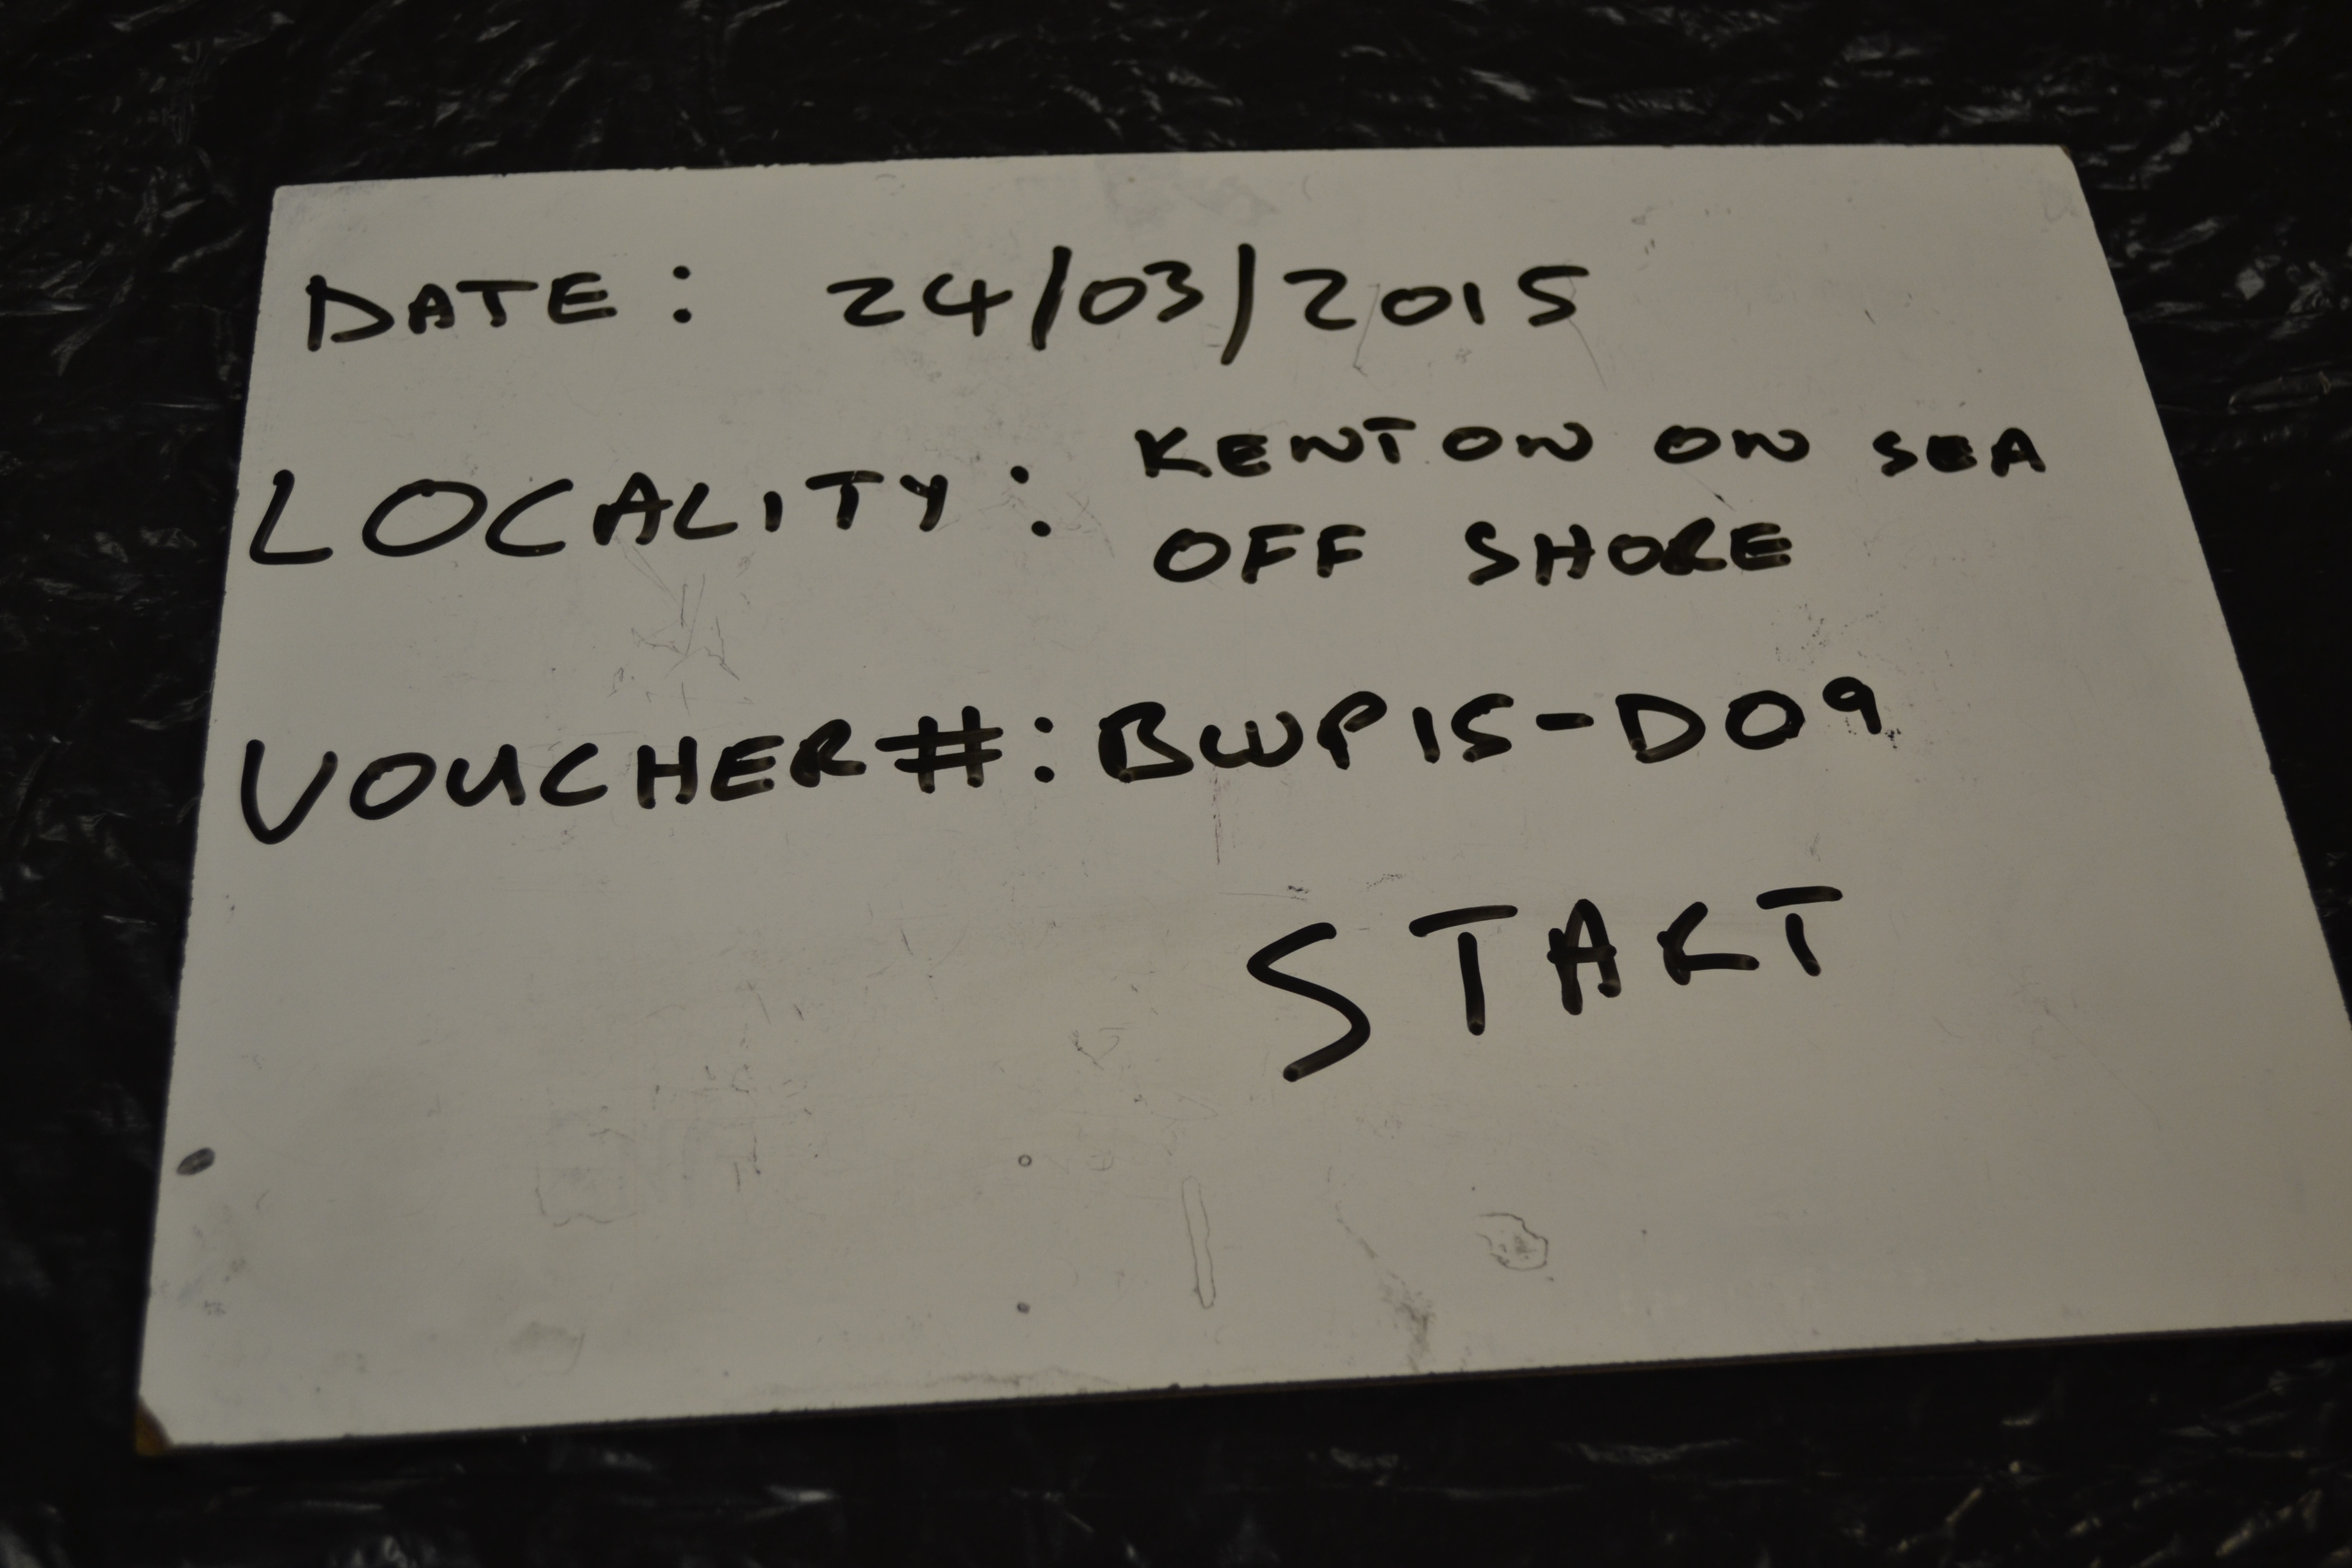 DATE: 24/03/2015
LOCALITY: KENTON ON SEA
OFF SHORE
VOUCHER#: BWP15-D09
START